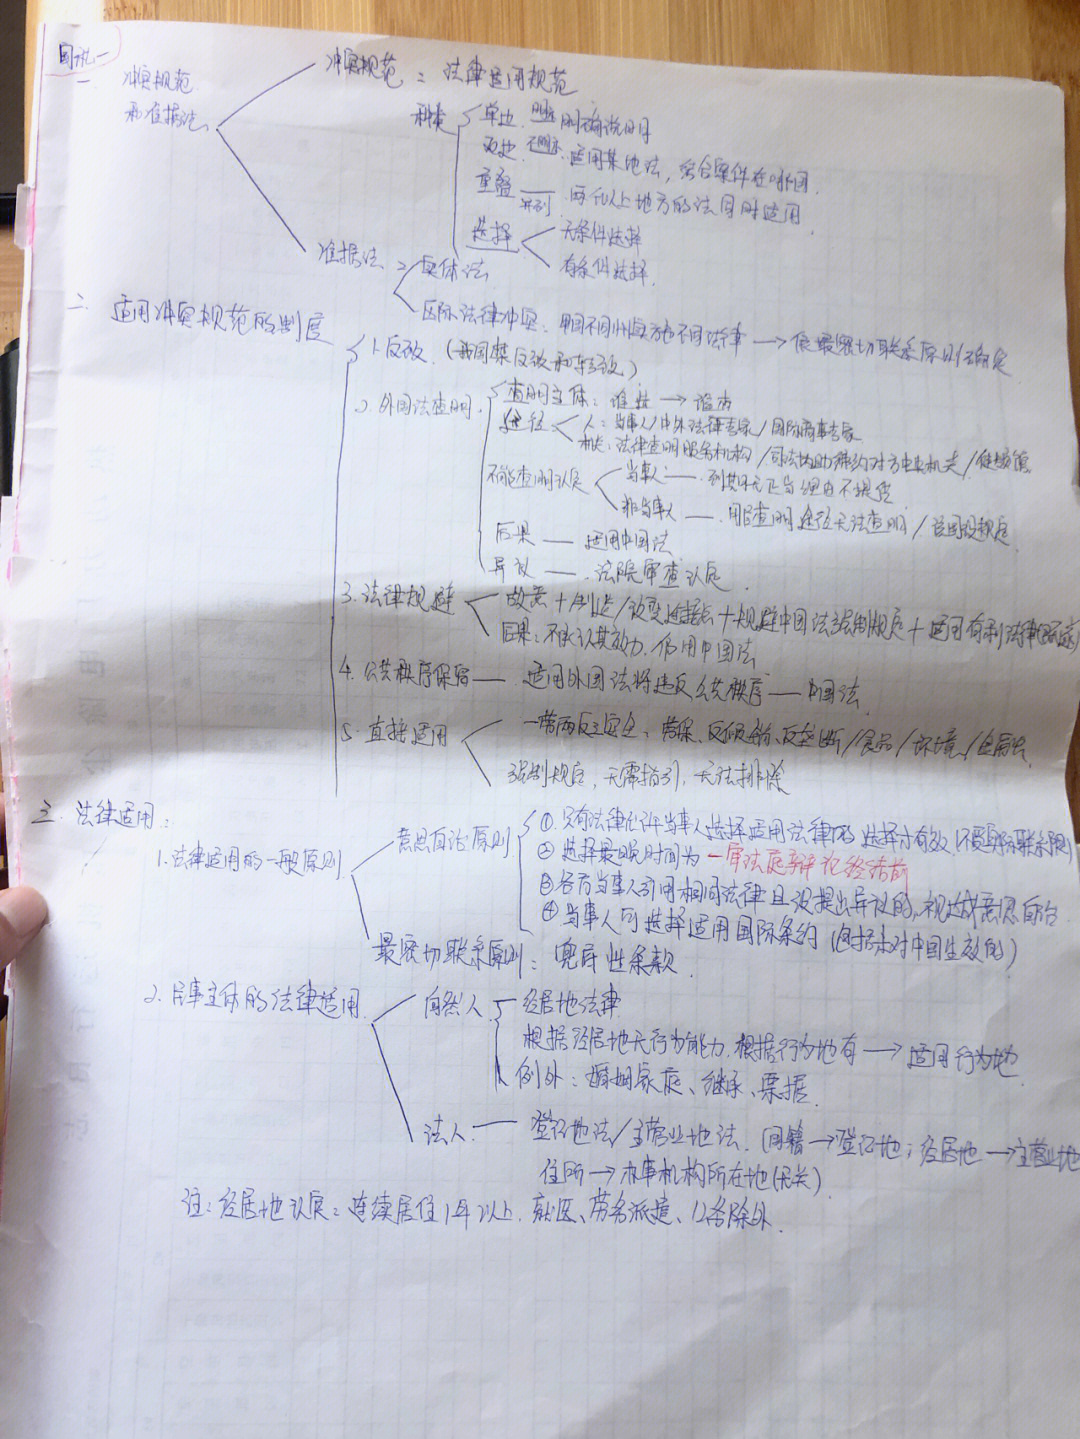 国私一
一 冲突规范 = 法律适用规范
冲突规范
和准据法
种类 单边 明确
双边 适用某地法,结合案件在哪国.
重叠 并列 两个以上地方的法同时适用
选择 无条件选择
有条件选择.
准据法 = 实体法
区际法律冲突: 不同法律 → 依最密切联系原则确定
二、适用冲突规范的制度
1. 反致. (我国禁反致和转致)
2. 外国法查明. 查明主体: 谁选 → 谁查
途径 人: 当事人/中外法律专家/国际商事专家
机关: 法律查明服务机构/司法协助条约对方中央机关/使领馆
不能查明认定 当事人 —— 无正当理由不提供
非当事人 —— 途径无法查明/该国没规定.
后果 —— 适用中国法
异议 —— 法院审查认定.
3. 法律规避 故意+制造/改变连接点+规避中国法强制规定+适用有利法律
后果: 不承认其效力.仍用中国法
4. 公共秩序保留 —— 适用外国法将违反公共秩序 —— 中国法.
5. 直接适用 安全、劳保、反倾销、反垄断/食品/环境/金融
强制规定, 无需指引, 无法排除
三. 法律适用:
1. 法律适用的一般原则 意思自治原则 ① 只有法律允许当事人选择适用法律的 选择才有效.
② 选择最晚时间为一审法庭辩论终结前
③ 各方当事人引用相同法律且没提出异议的,视达成意思自治
④ 当事人可选择适用国际条约(包括未对中国生效的)
最密切联系原则: 兜底性条款.
2. 民事主体的法律适用. 自然人 经居地法律
根据经居地无行为能力.根据行为地有 → 适用行为地
例外: 婚姻家庭、继承、票据.
法人 —— 登记地法/主营业地法. (国籍 → 登记地; 经居地 → 主营业地
住所 → 办事机构所在地(无关)
注: 经居地认定: 连续居住1年以上. 就医、劳务派遣、公务除外.